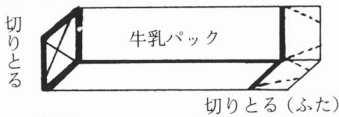 切りとる
牛乳パック
切りとる(ふた)